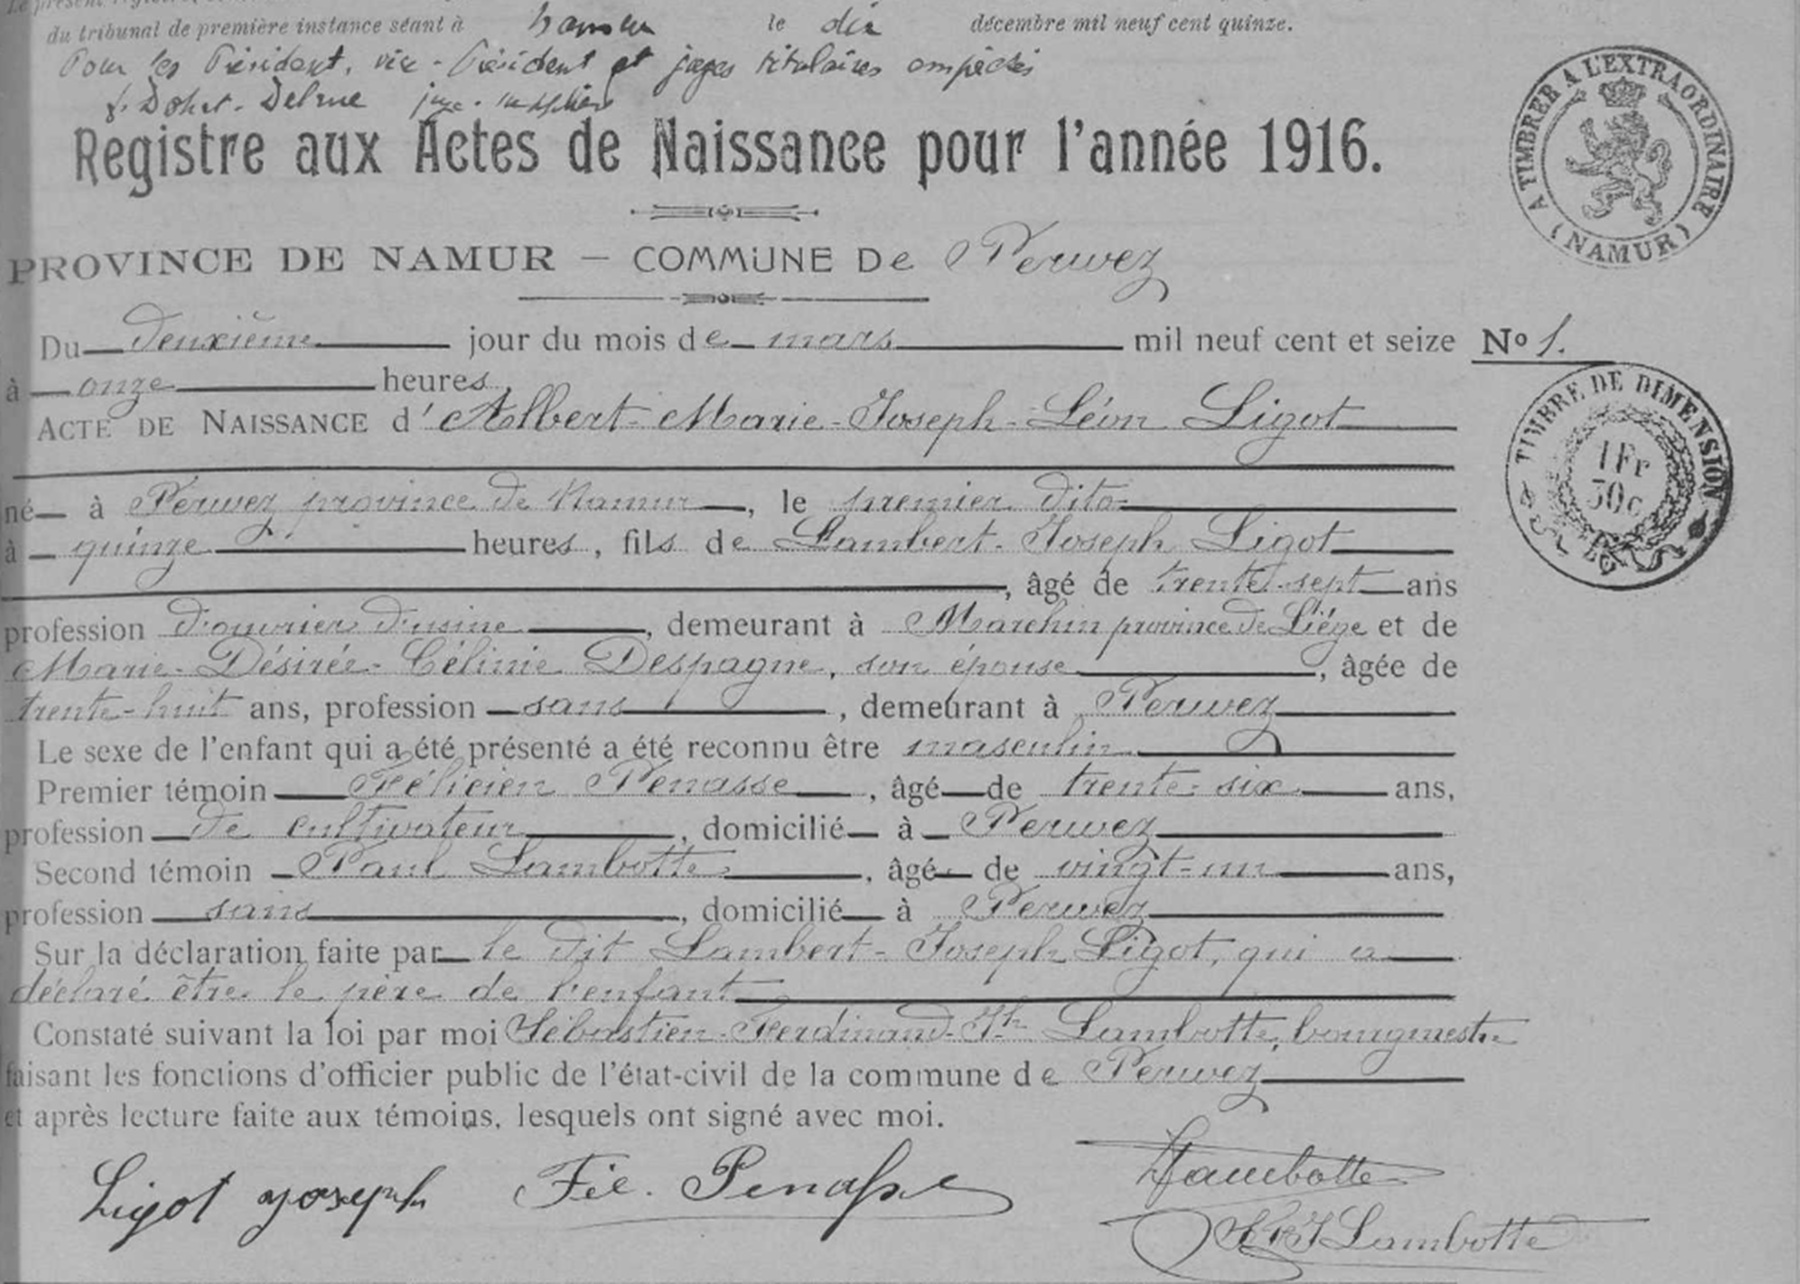 du tribunal de première instance séant à Namur le dix décembre mil neuf cent quinze.
Pour les Président, vice-Président et juges titulaires empêchés
Dohet-Delrue juge-suppléant
Registre aux Actes de Naissance pour l'année 1916.
A TIMBRER A L'EXTRAORDINAIRE
(NAMUR)
PROVINCE DE NAMUR – COMMUNE De Perwez
Du deuxième jour du mois de mars mil neuf cent et seize No 1.
à onze heures,
ACTE DE NAISSANCE d'Albert-Marie-Joseph-Léon Ligot
TIMBRE DE DIMENSION
1 Fr
50c
né à Perwez province de Namur, le premier dito
à quinze heures, fils de Lambert-Joseph Ligot
, âgé de trente-sept ans
profession d'ouvrier d'usine, demeurant à Marchin province de Liége et de
Marie-Désirée-Célinie Despagne, son épouse, âgée de
trente-huit ans, profession sans, demeurant à Perwez
Le sexe de l'enfant qui a été présenté a été reconnu être masculin.
Premier témoin Félicien Penasse, âgé de trente-six ans,
profession de cultivateur, domicilié à Perwez
Second témoin Paul Lambotte, âgé de vingt-un ans,
profession sans, domicilié à Perwez
Sur la déclaration faite par le dit Lambert-Joseph Ligot, qui a
déclaré être le père de l'enfant
Constaté suivant la loi par moi Sébastien-Ferdinand-Jh Lambotte, bourgmestre
faisant les fonctions d'officier public de l'état-civil de la commune de Perwez
et après lecture faite aux témoins, lesquels ont signé avec moi.
Ligot Joseph Fél. Penasse Lambotte
Lambotte